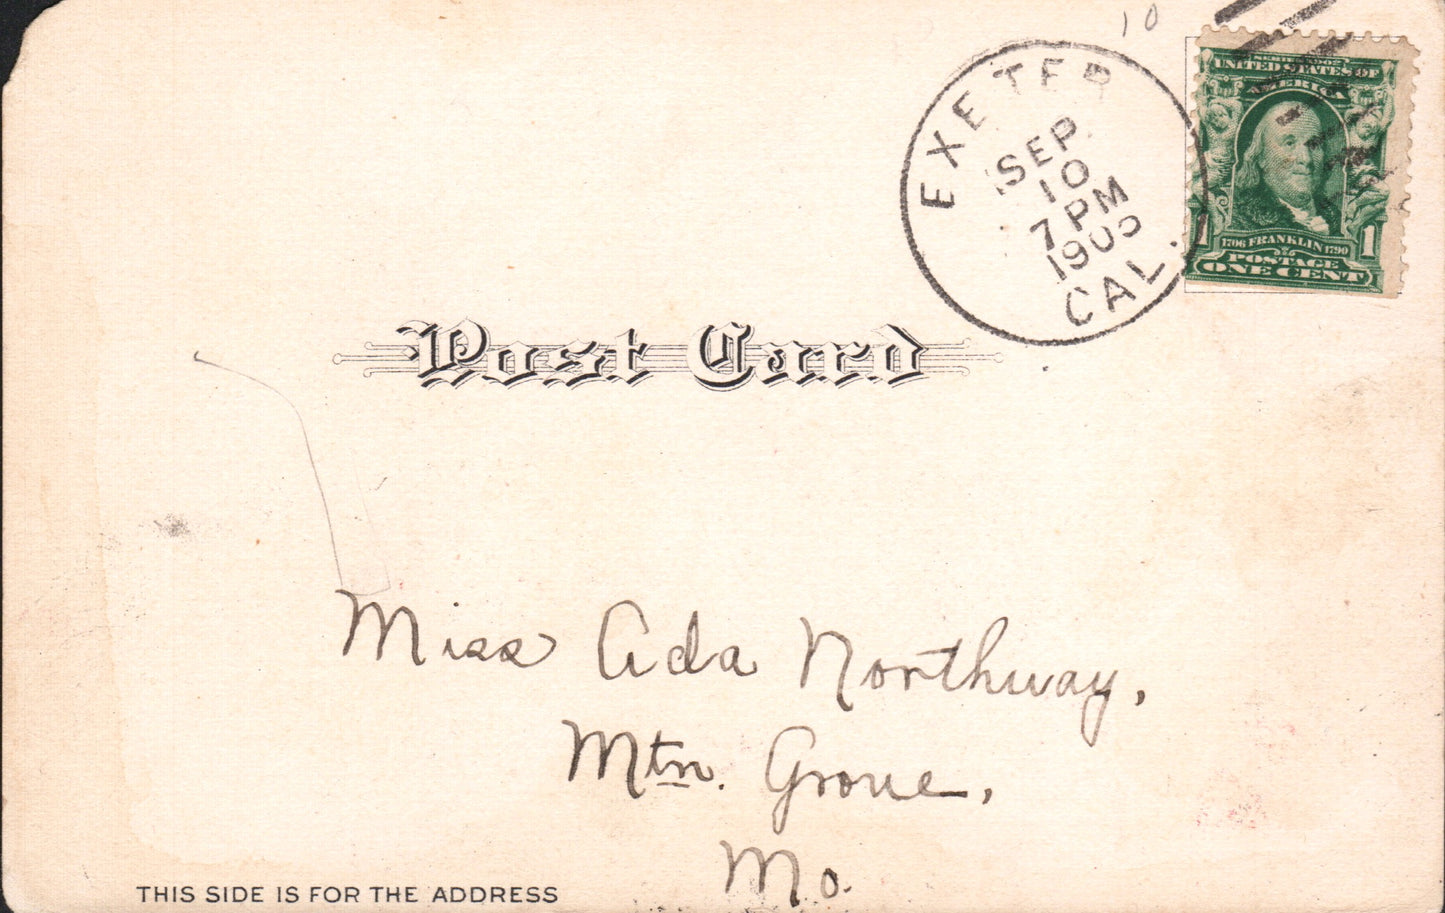 10
EXETER
SEP
10
7 PM
CAL.
SERIES 1902
UNITED STATES OF
AMERICA
1706 FRANKLIN 1790
1 1
POSTAGE
ONE CENT
Post Card
Miss Ada Northway,
Mtn. Grove,
Mo.
THIS SIDE IS FOR THE ADDRESS